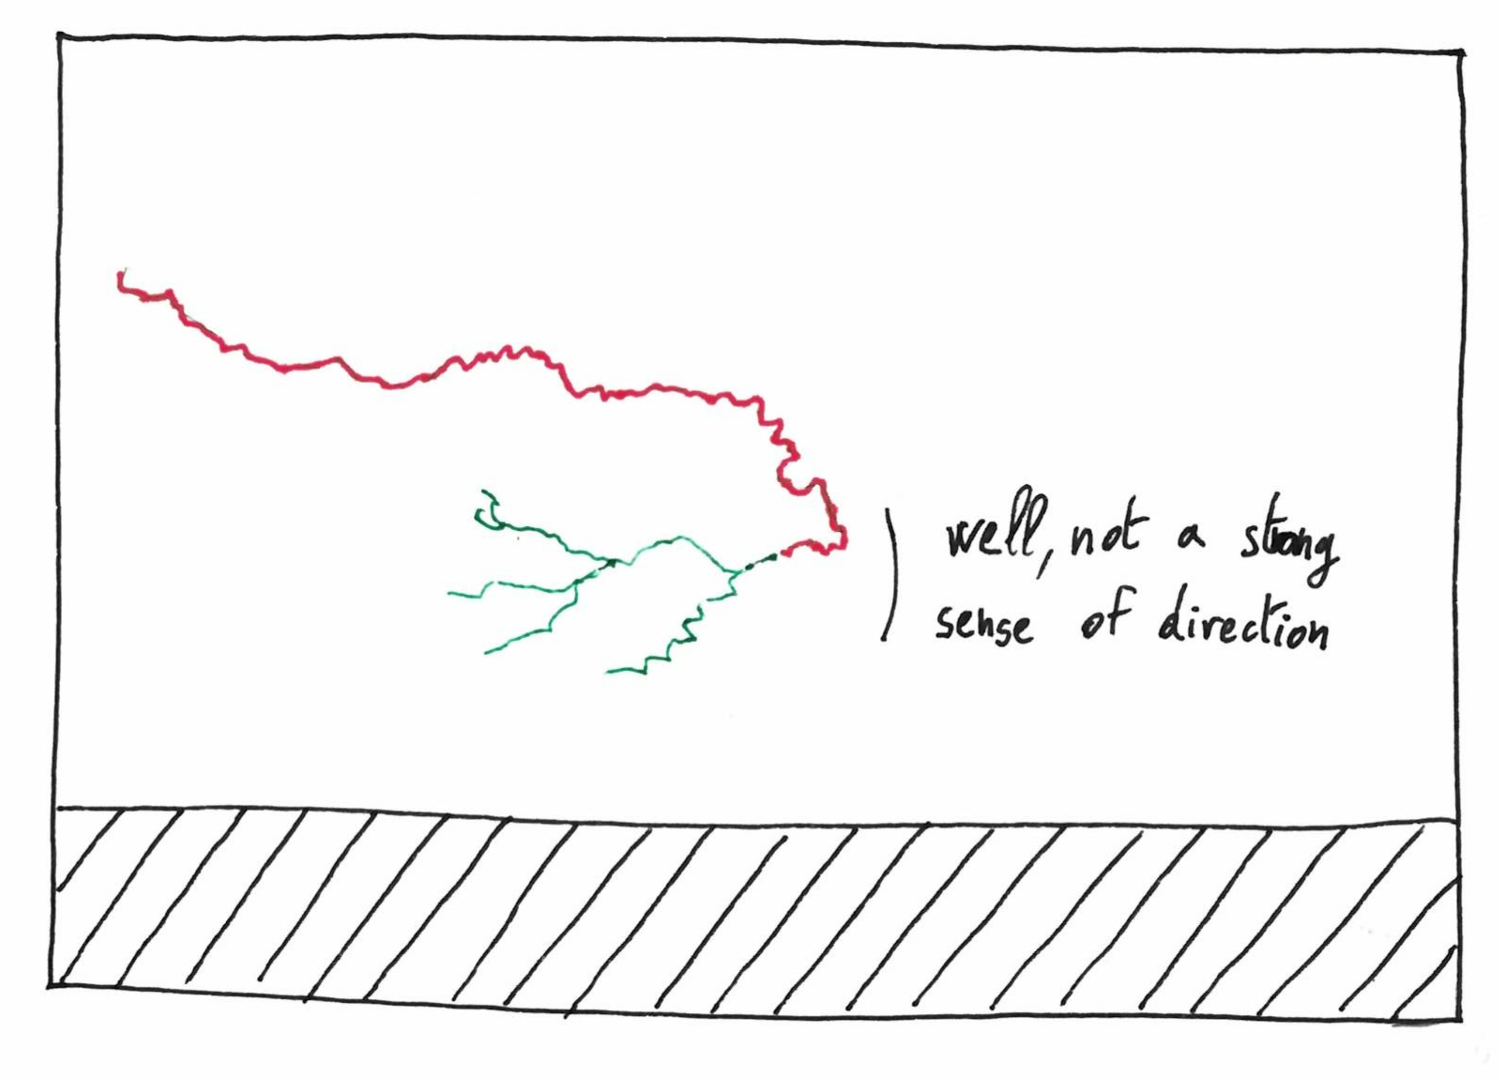 well, not a strong
sense of direction